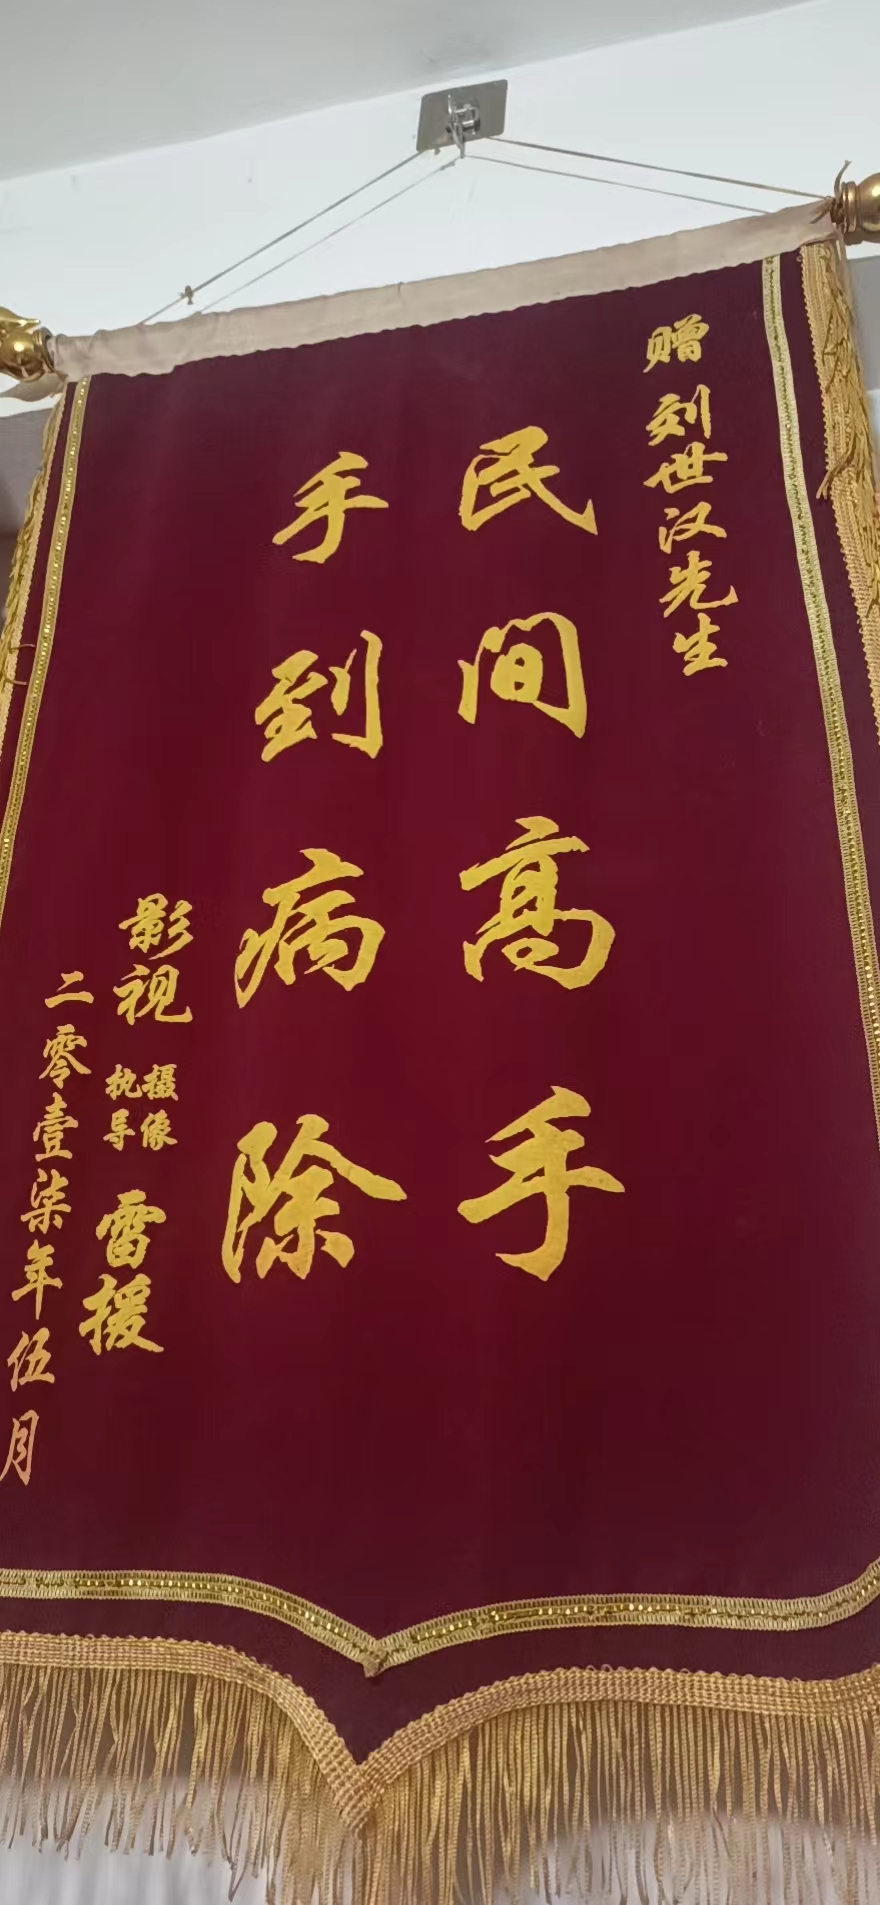 赠 刘世汉先生
民间高手
手到病除
影视 摄像 执导 雷援
二零壹柒年伍月